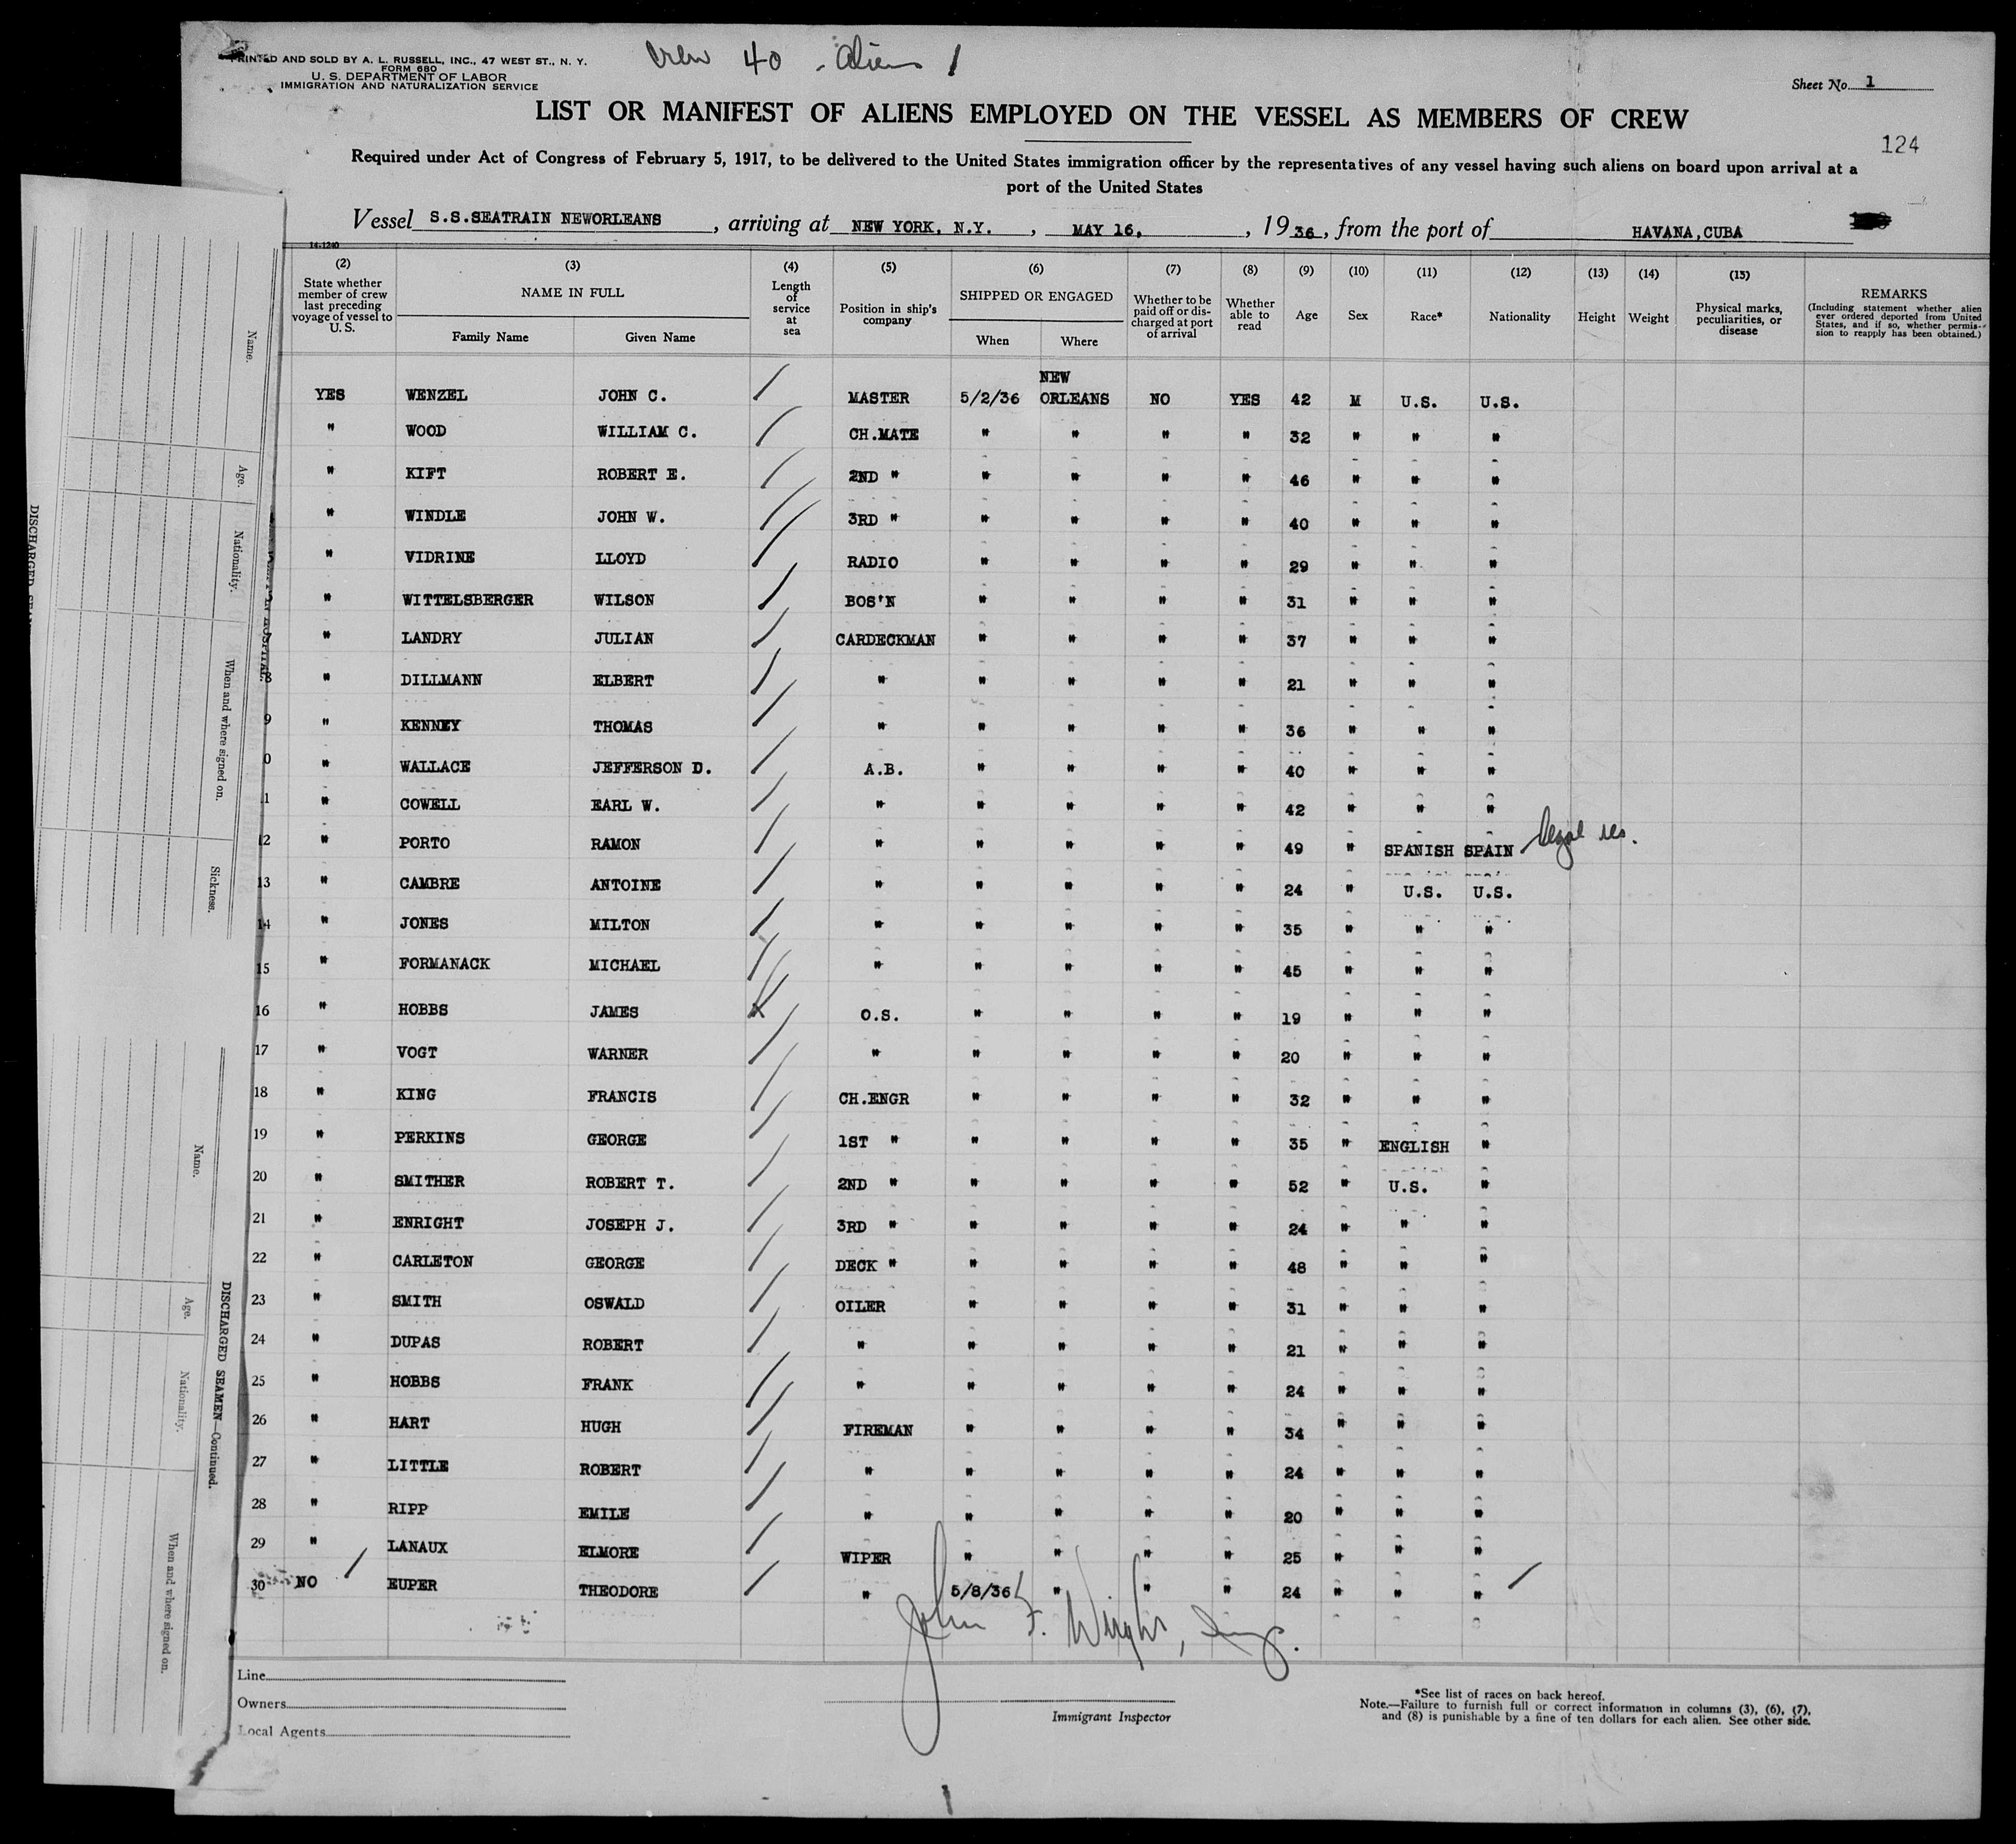 PRINTED AND SOLD BY A. L. RUSSELL, INC., 47 WEST ST., N. Y.
FORM 680
U. S. DEPARTMENT OF LABOR
IMMIGRATION AND NATURALIZATION SERVICE
Crew 40 - Aliens 1
Sheet No. 1
LIST OR MANIFEST OF ALIENS EMPLOYED ON THE VESSEL AS MEMBERS OF CREW
124
Required under Act of Congress of February 5, 1917, to be delivered to the United States immigration officer by the representatives of any vessel having such aliens on board upon arrival at a
port of the United States
Vessel S.S.SEATRAIN NEWORLEANS, arriving at NEW YORK, N.Y., MAY 16, 1936, from the port of HAVANA,CUBA
14-1240
(2) (3) (4) (5) (6) (7) (8) (9) (10) (11) (12) (13) (14) (15)
State whether member of crew last preceding voyage of vessel to U. S. NAME IN FULL Family Name Given Name Length of service at sea Position in ship's company SHIPPED OR ENGAGED When Where Whether to be paid off or discharged at port of arrival Whether able to read Age Sex Race* Nationality Height Weight Physical marks, peculiarities, or disease REMARKS (Including statement whether alien ever ordered deported from United States, and if so, whether permission to reapply has been obtained.)
YES WENZEL JOHN C. MASTER 5/2/36 NEW ORLEANS NO YES 42 M U.S. U.S.
" WOOD WILLIAM C. CH.MATE " " " " 32 " " "
" KIFT ROBERT E. 2ND " " " " " 46 " " "
" WINDLE JOHN W. 3RD " " " " " 40 " " "
" VIDRINE LLOYD RADIO " " " " 29 " " "
" WITTELSBERGER WILSON BOS'N " " " " 31 " " "
" LANDRY JULIAN CARDECKMAN " " " " 37 " " "
8 " DILLMANN ELBERT " " " " " 21 " " "
9 " KENNEY THOMAS " " " " " 36 " " "
0 " WALLACE JEFFERSON D. A.B. " " " " 40 " " "
1 " COWELL EARL W. " " " " " 42 " " "
12 " PORTO RAMON " " " " " 49 " SPANISH SPAIN legal res.
13 " CAMBRE ANTOINE " " " " " 24 " U.S. U.S.
14 " JONES MILTON " " " " " 35 " " "
15 " FORMANACK MICHAEL " " " " " 45 " " "
16 " HOBBS JAMES O.S. " " " " 19 " " "
17 " VOGT WARNER " " " " " 20 " " "
18 " KING FRANCIS CH.ENGR " " " " 32 " " "
19 " PERKINS GEORGE 1ST " " " " " 35 " ENGLISH "
20 " SMITHER ROBERT T. 2ND " " " " " 52 " U.S. "
21 " ENRIGHT JOSEPH J. 3RD " " " " " 24 " " "
22 " CARLETON GEORGE DECK " " " " " 48 " " "
23 " SMITH OSWALD OILER " " " " 31 " " "
24 " DUPAS ROBERT " " " " " 21 " " "
25 " HOBBS FRANK " " " " " 24 " " "
26 " HART HUGH FIREMAN " " " " 34 " " "
27 " LITTLE ROBERT " " " " " 24 " " "
28 " RIPP EMILE " " " " " 20 " " "
29 " LANAUX ELMORE WIPER " " " " 25 " " "
30 NO EUPER THEODORE " 5/8/36 " " " 24 " " "
John F. Wright, Insp.
Line
Owners
Local Agents
Immigrant Inspector
*See list of races on back hereof.
Note.—Failure to furnish full or correct information in columns (3), (6), (7),
and (8) is punishable by a fine of ten dollars for each alien. See other side.
Name.
Age.
Nationality.
When and where signed on.
Sickness.
Name.
Age.
Nationality.
When and where signed on.
DISCHARGED SEAMEN—Continued.